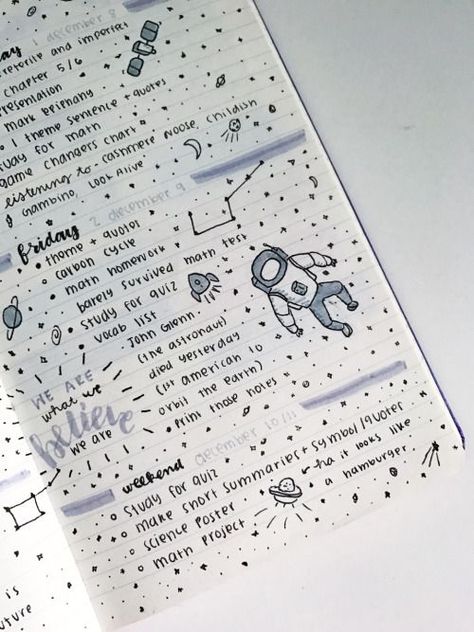 ay 1 december 8
reterite and imperfect
chapter 5/6
resentation
mark epiphany
1 theme sentence + quotes
tudy for math
game changers chart
listening to cashmere noose, childish
gambino, Look Alive
friday 2 december 9
theme + quotes
carbon cycle
math homework
barely survived math test
study for quiz
vocab list
John Glenn
(the astronaut)
died yesterday
(1st american to
orbit the earth)
print those notes
WE ARE
what we
believe
we are
weekend december 10/11
study for quiz
make short summaries + symbol/quotes
science poster
math project
ha it looks like
a hamburger
is
uture